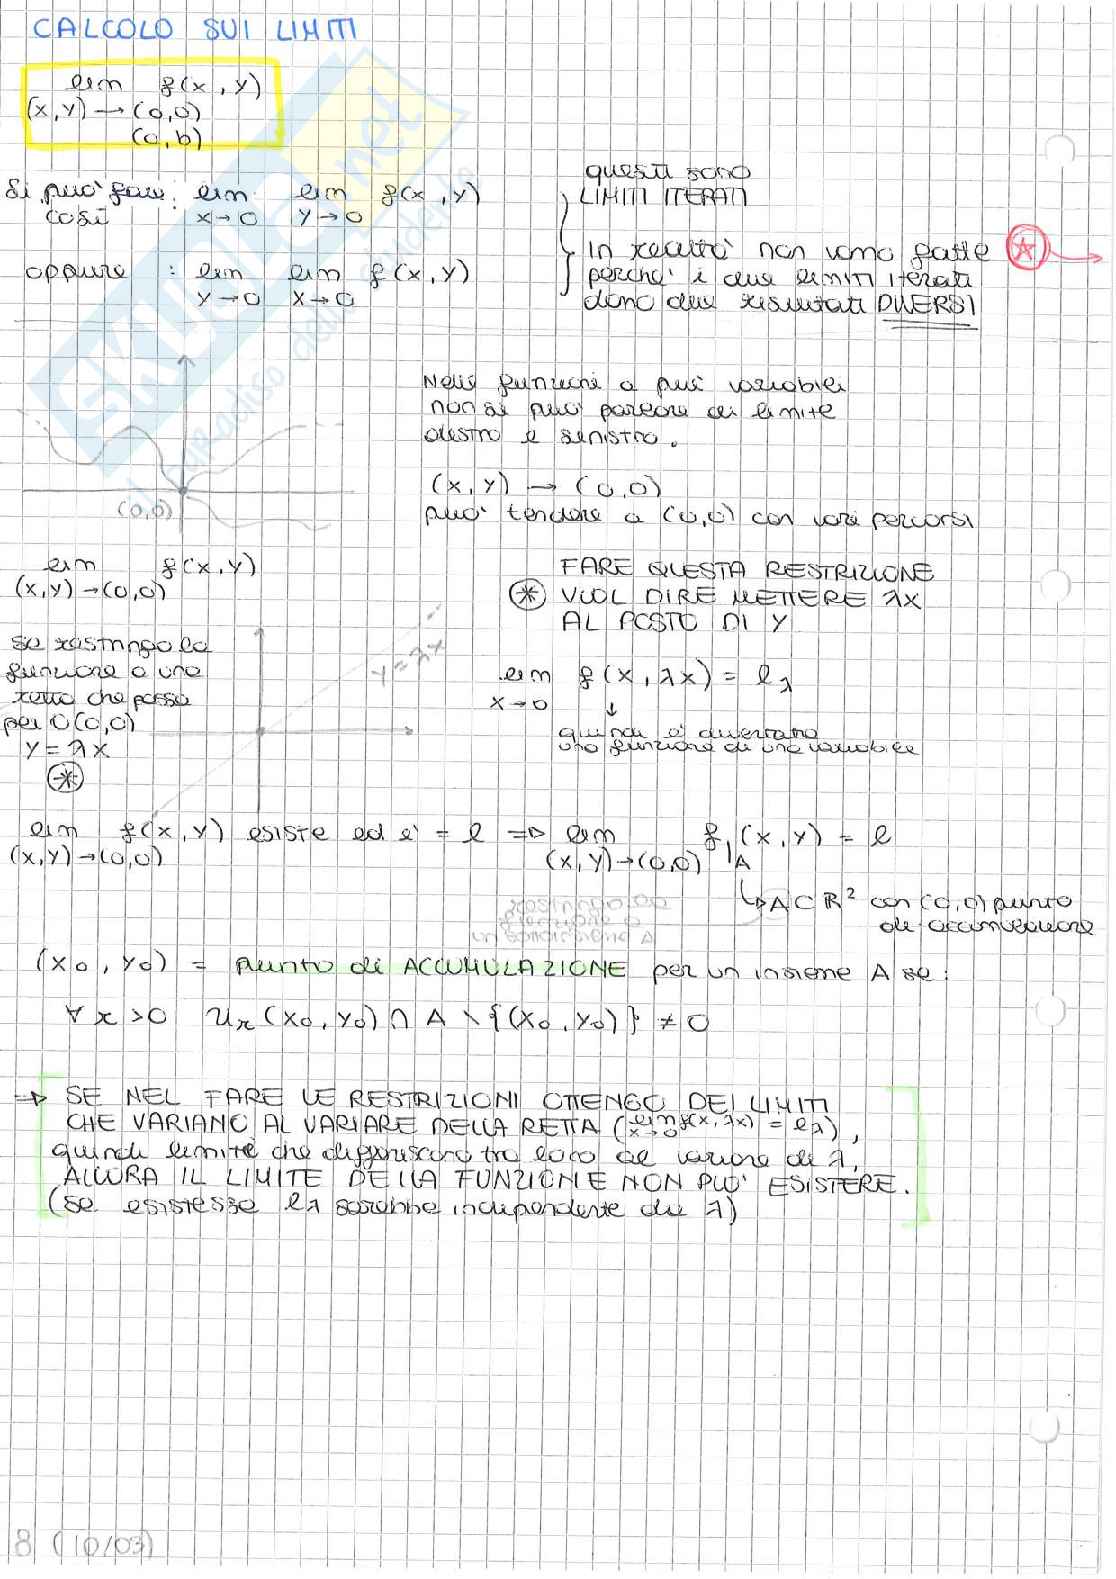 CALCOLO SUI LIMITI
lim f(x,y)
(x,y)→(0,0)
(a,b)
questi sono
LIMITI ITERATI
Si può fare : lim lim f(x,y)
così x→0 y→0
In realtà non vanno fatte
oppure : lim lim f(x,y)
y→0 x→0
perché i due limiti iterati
danno due risultati DIVERSI
Nelle funzioni a più variabili
non si può parlare di limite
destro e sinistro.
(x,y) → (0,0)
può tendere a (0,0) con vari percorsi
(0,0)
lim f(x,y)
(x,y)→(0,0)
FARE QUESTA RESTRIZIONE
VUOL DIRE METTERE λx
AL POSTO DI Y
se restringo la
funzione a una
retta che passa
per O(0,0)
y = λx
y = λx
lim f(x,λx) = lλ
x→0 ↓
quindi è diventata
una funzione di una variabile
lim f(x,y) esiste ed è = l ⇒ lim f|A (x,y) = l
(x,y)→(0,0) (x,y)→(0,0)
↳ A⊂R² con (0,0) punto
di accumulazione
(x₀,y₀) = punto di ACCUMULAZIONE per un insieme A se:
∀ r>0 Ur(x₀,y₀) ∩ A \ {(x₀,y₀)} ≠ 0
⇒ SE NEL FARE LE RESTRIZIONI OTTENGO DEI LIMITI
CHE VARIANO AL VARIARE DELLA RETTA (lim x→0 f(x,λx) = lλ),
quindi limiti che differiscano tra loro al variare di λ,
ALLORA IL LIMITE DELLA FUNZIONE NON PUO' ESISTERE.
(se esistesse lλ sarebbe indipendente da λ)
8 (10/03)
SKUOLA.net